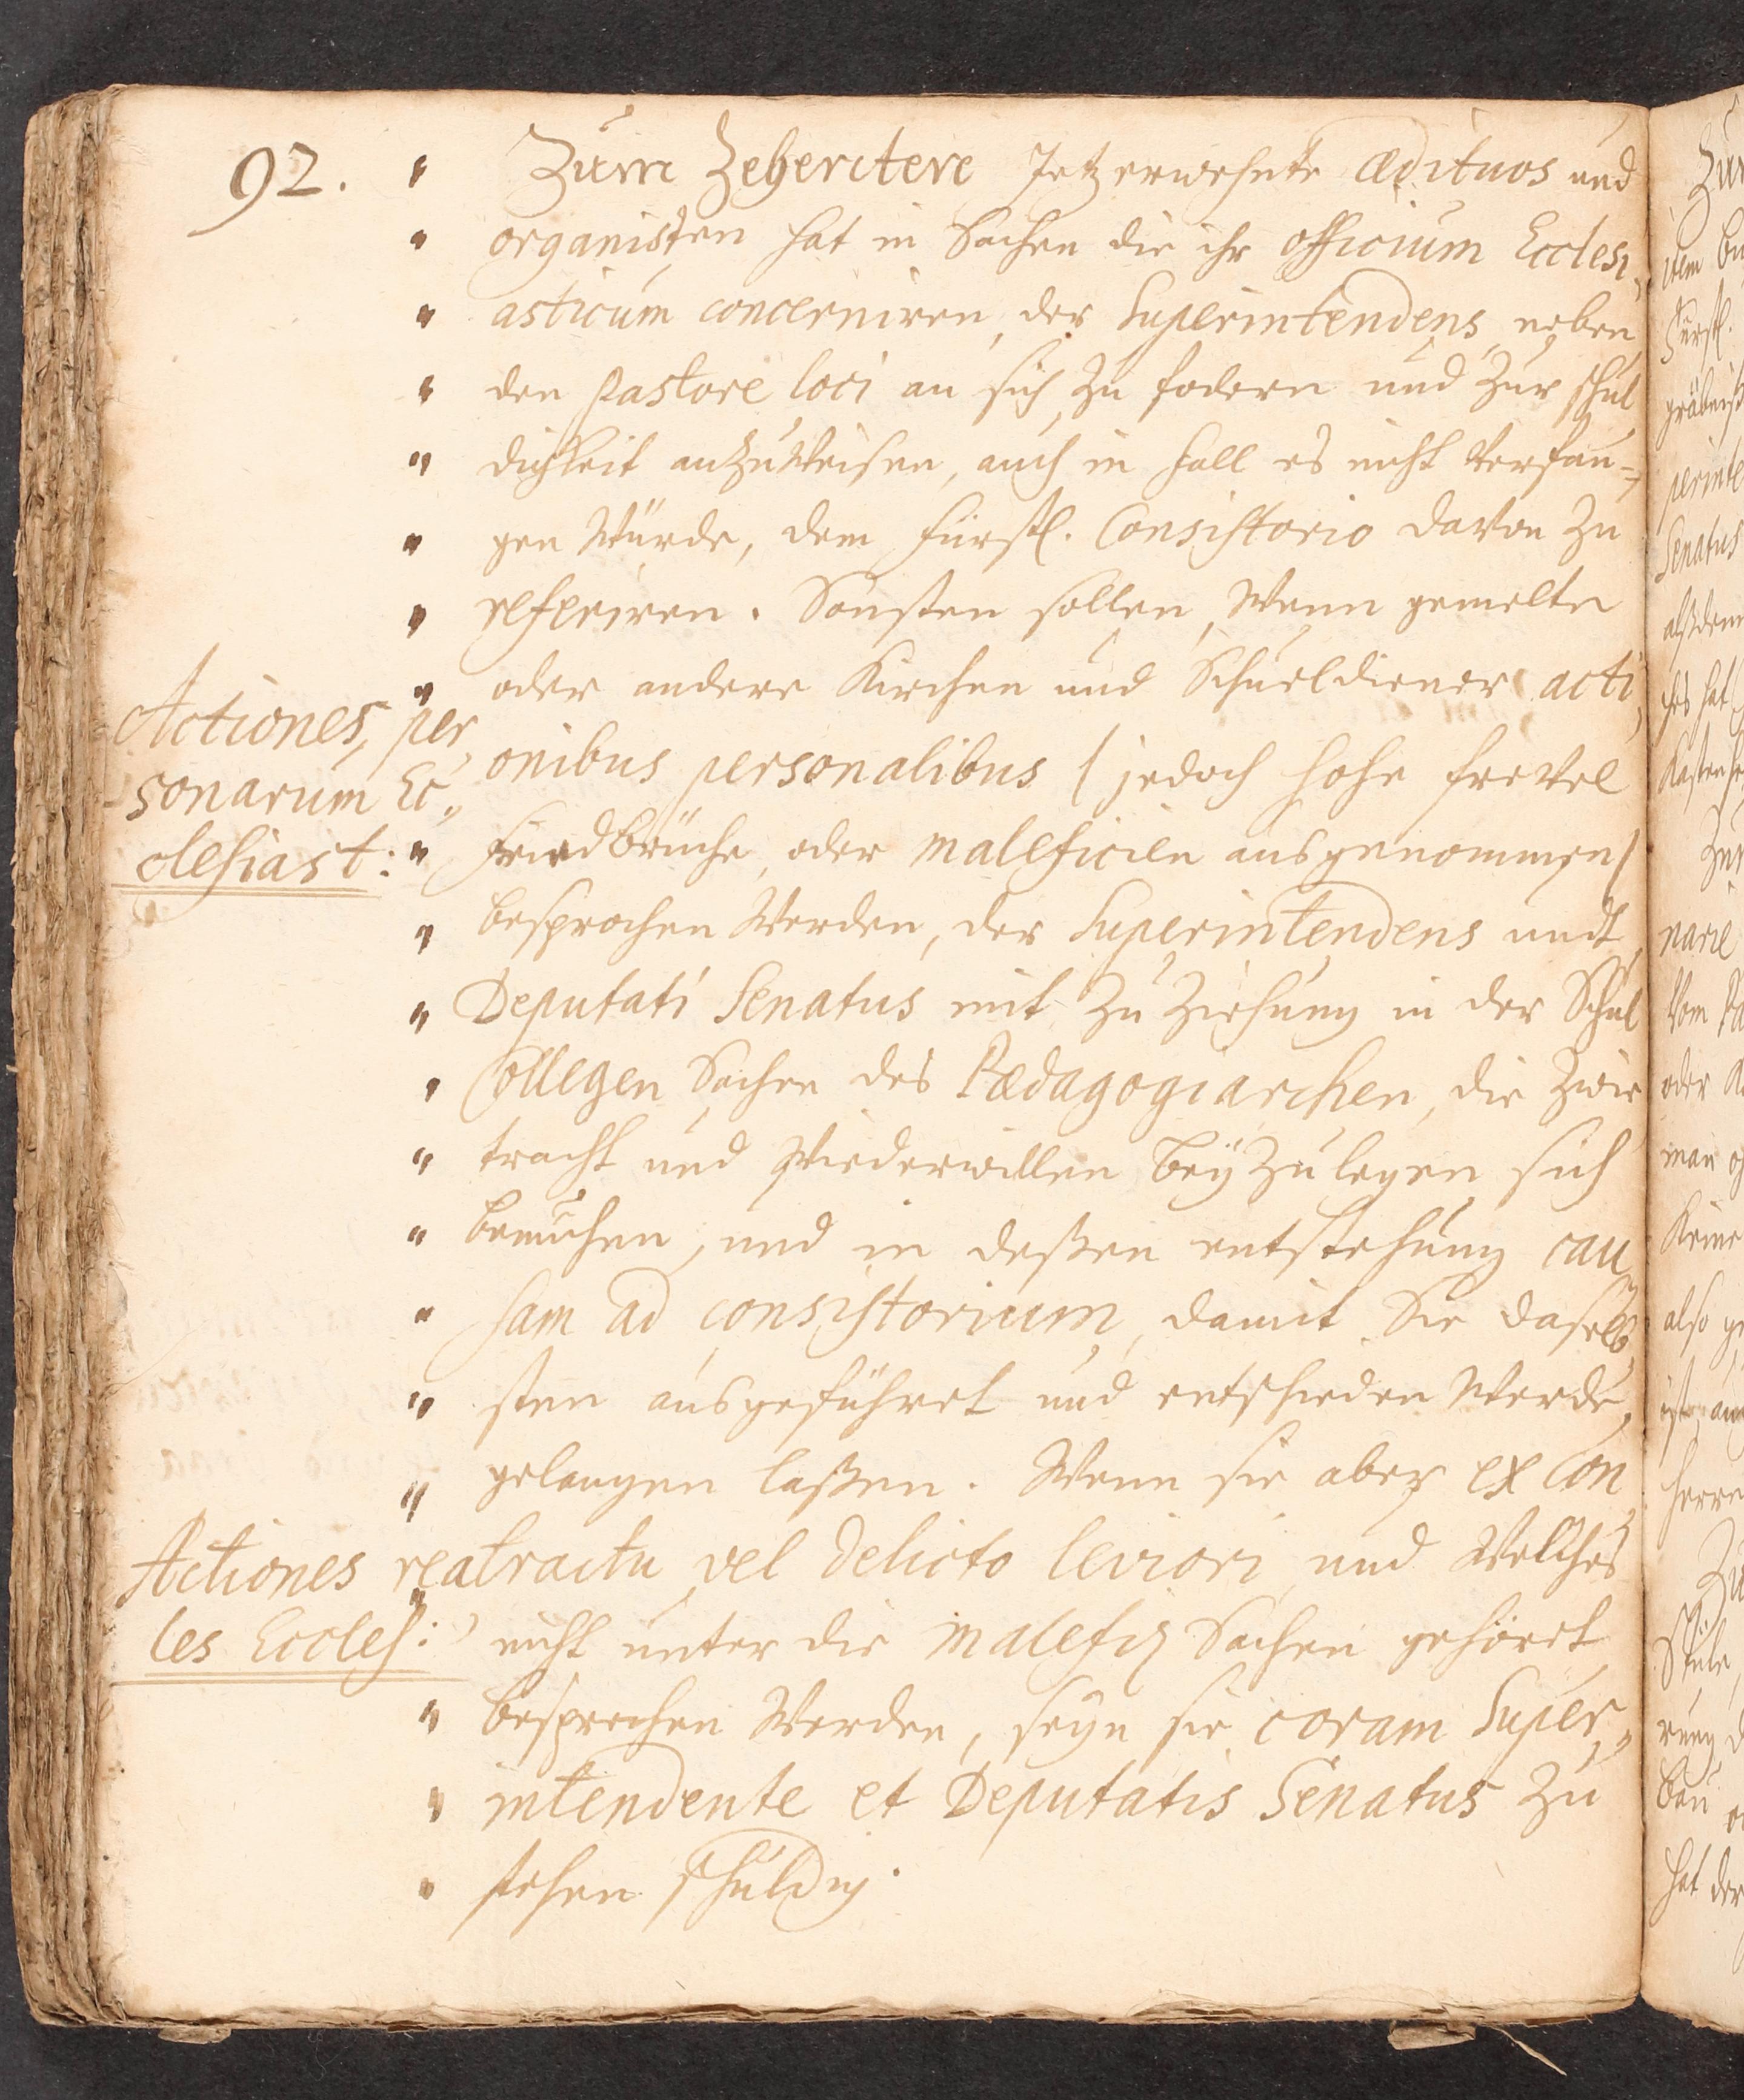 92. " Zum Zehenten Jetzerwehnte ædituos und
" organisten hat in Sachen die ihr officium Ecclesi,
" asticum concerniren, der Superintendens neben
" den Pastore loci an sich zu fodern und zur schul
" digkeit anzuweisen, auch in fall es nicht verfan-
" gen würde, dem Fürstl. Consistorio davon zu
" referiren. Sonsten sollen, wenn gemelte
" oder andere Kirchen und Schueldiener acti,
Actiones, per
sonarum Ec,,
clesiast:
onibus personalibus ( jedoch hohe frevel
" Friedbrüche, oder maleficien ausgenommen)
" besprochen werden, der Superintendens undt
" Deputati Senatus mit zu Ziehung in der Schul
" Collegen Sachen des Pædagogiarchen, die Zwie
" tracht und wiederwillen beÿzulegen sich
" bemühen, und in deßen entstehung cau
" sam ad consistorium, damit Sie daselb,
" sten ausgeführet und entschieden werde,
" gelangen laßen. Wenn sie aber ex Con,
Actiones rea
les Eccles:
" tractu vel delicto leviori und welches
" nicht unter die malefiz Sachen gehöret
" besprochen werden, seyn sie coram Super,,
" intendente et Deputatis Senatus zu
" stehen schuldig.